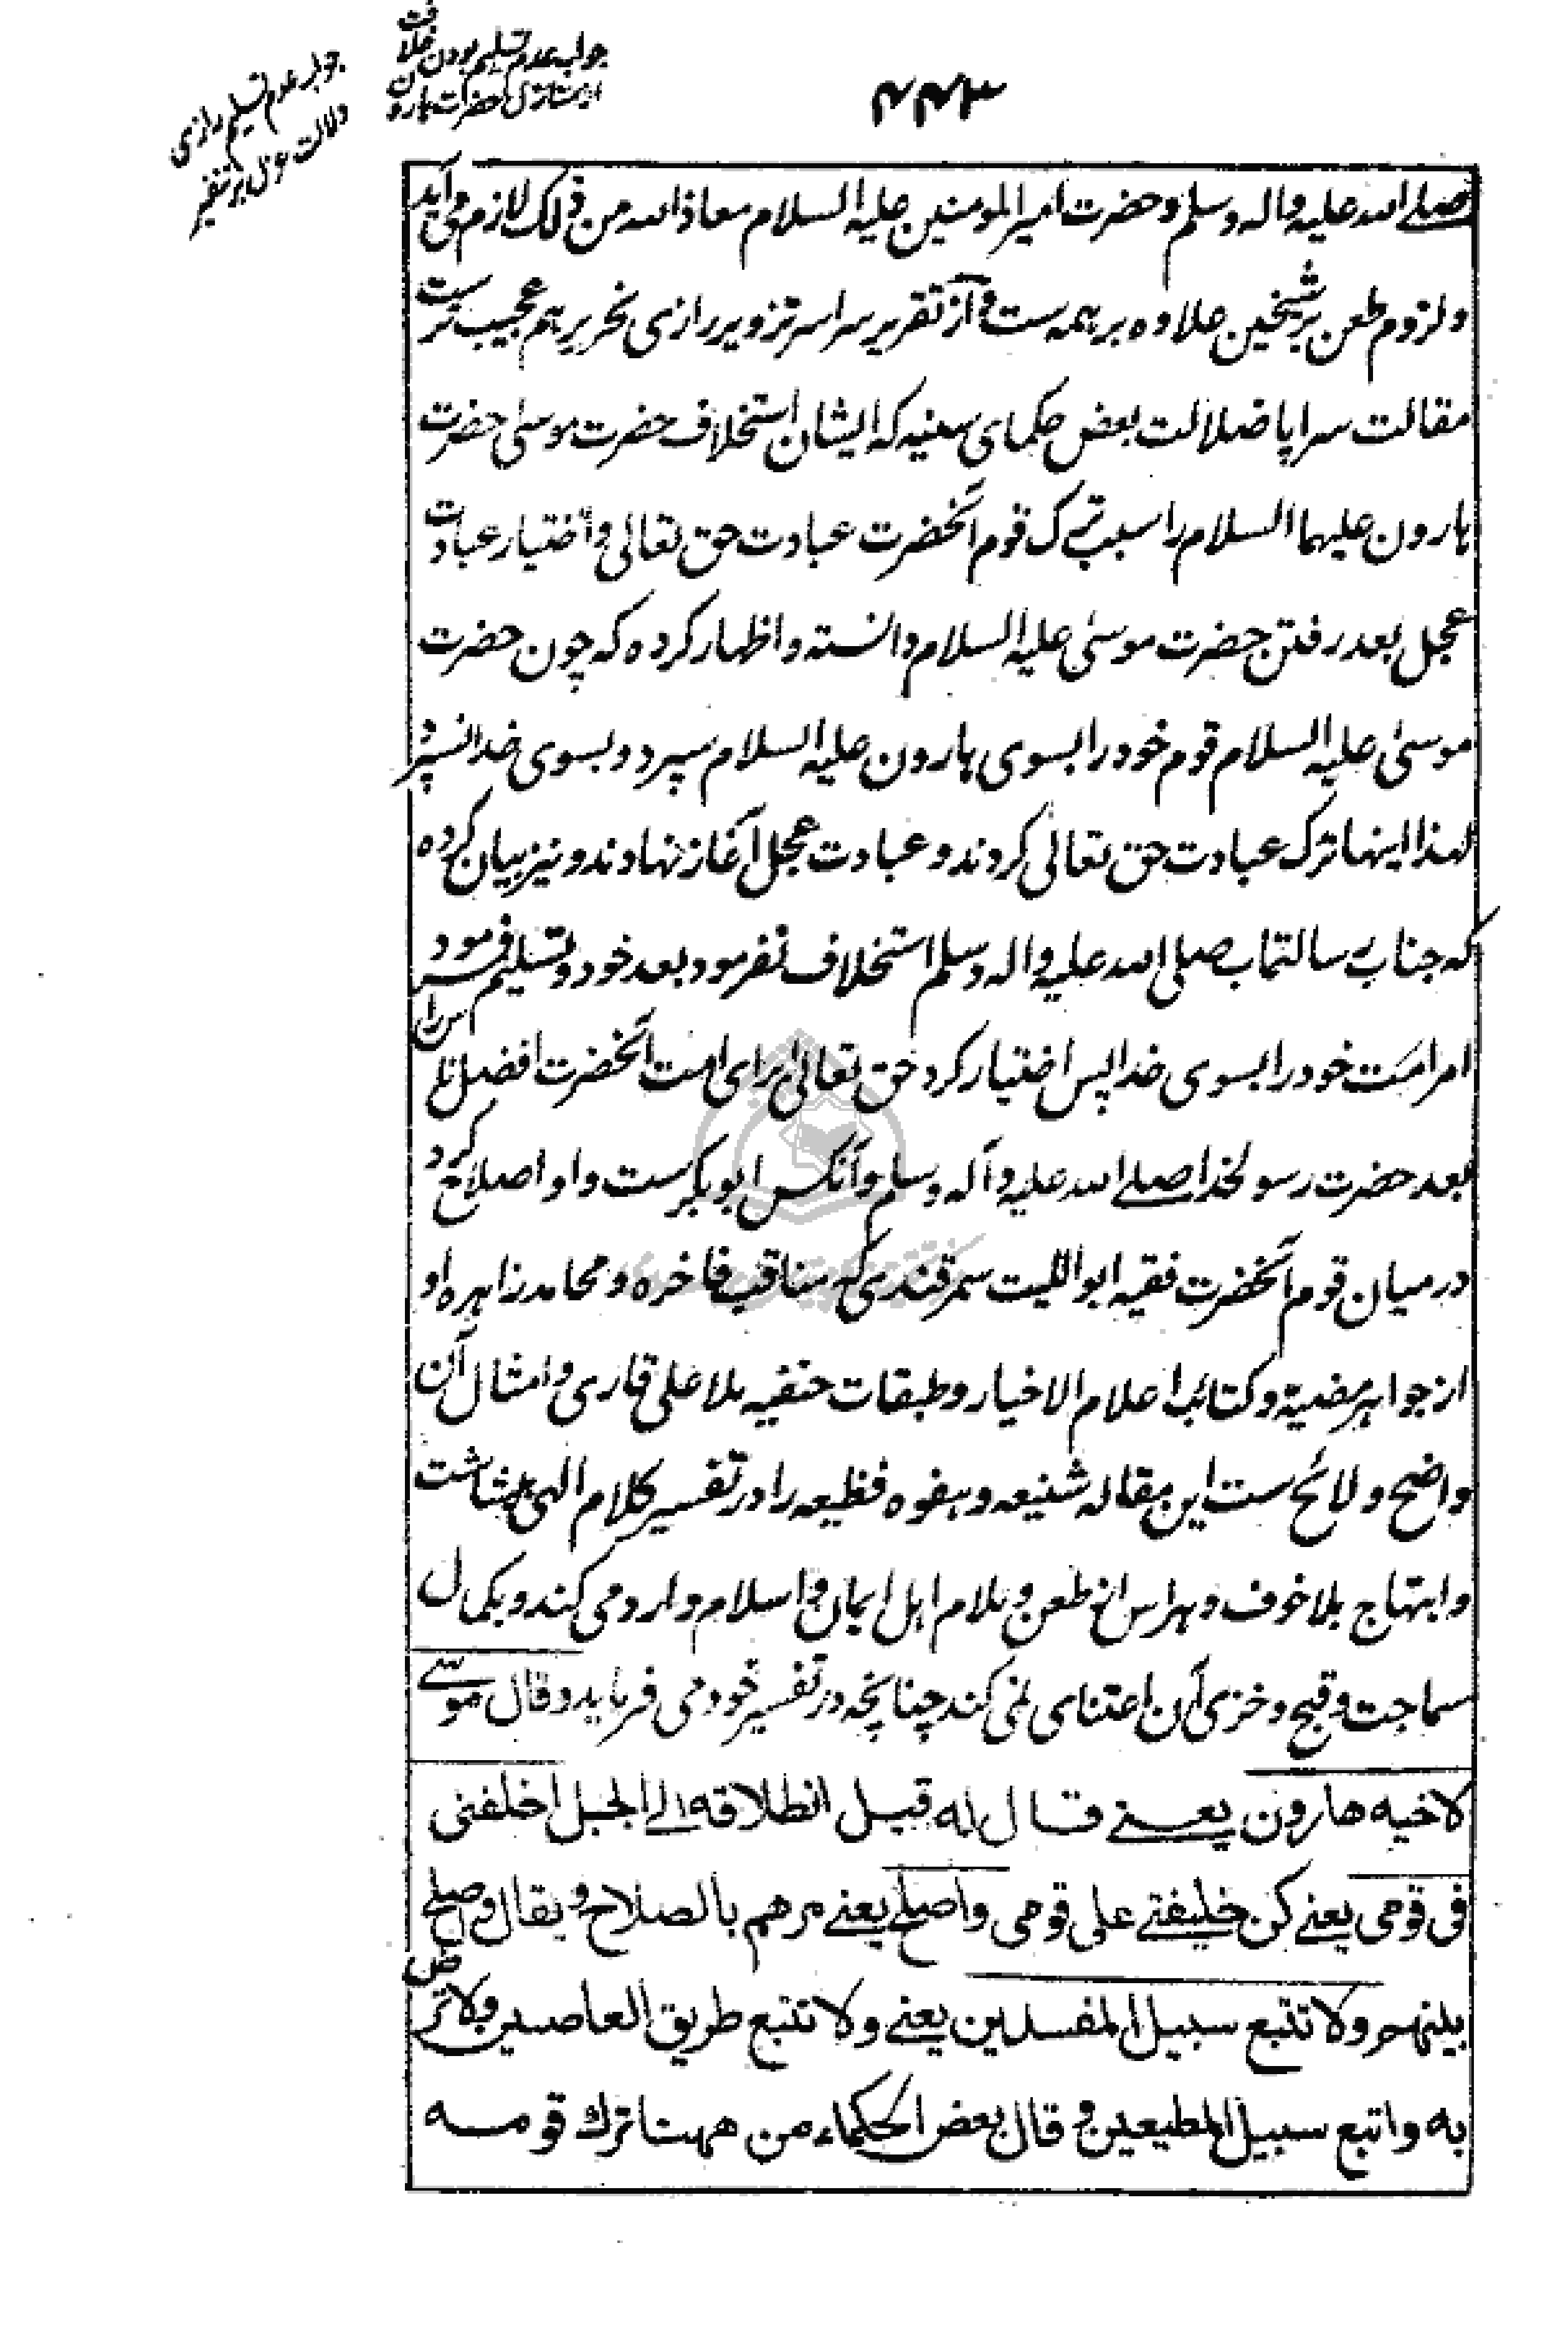 ۴۴۳
جواب عدم تسلیم بودن خلافت
حضرت هارون
جواب عدم تسلیم رازی
دلالت عزل بر تنفیر
صلے اللہ علیہ والہ وسلم و حضرت امیر المومنین علیہ السلام معاذ اللہ من ذلک لازم می آید
و لزوم طعن بر شیخین علاوہ بر ہمہ ست و از تقریر سراسر تزویر رازی نحریر ہم عجیب ترست
مقالت سراپا ضلالت بعض حکمای سنیہ کہ ایشان استخلاف حضرت موسیٰ حضرت
ہارون علیہما السلام را سبب ترک قوم آنحضرت عبادت حق تعالی و اختیار عبادت
عجل بعد رفتن حضرت موسیٰ علیہ السلام دانستہ و اظہار کردہ کہ چون حضرت
موسیٰ علیہ السلام قوم خود را بسوی ہارون علیہ السلام سپرد و بسوی خدا نسپرد
لہذا اینہا ترک عبادت حق تعالی کردند و عبادت عجل آغاز نہادند و نیز بیان کردہ
کہ جناب رسالتمآب صلی اللہ علیہ والہ وسلم استخلاف نفرمود بعد خود و تسلیم فرمود
امر امت خود را بسوی خدا پس اختیار کرد حق تعالی برای امت آنحضرت افضل ناس را
بعد حضرت رسولخدا صلے اللہ علیہ و آلہ وسلم و آنکس ابوبکر ست و او اصلاح کرد
درمیان قوم آنحضرت فقیہ ابو اللیث سمرقندی کہ مناقب فاخرہ و محامد زاہرہ او
از جواہر مضیۃ و کتائب اعلام الاخیار و طبقات حنفیہ ملا علی قاری و امثال آن
واضح و لائح ست این مقالہ شنیعہ و ہفوہ فظیعہ را در تفسیر کلام الہی بہشاشت
و ابتہاج بلا خوف و ہراس از طعن و ملام اہل ایمان و اسلام وارد می کند و بکمال
سماجت و قبح و خزی آن اعتنای نمی کند چنانچہ در تفسیر خود می فرماید وقال موسے
لاخیه هارون یعنے قال له قبل انطلاقه الے الجبل اخلفنی
فی قومی یعنے کن خلیفتے علی قومی واصلح یعنے مرهم بالصلاح ویقال واصلح
بینهم ولا تتبع سبیل المفسدین یعنے ولا تتبع طریق العاصین ولا ترض
به واتبع سبیل المطیعین وقال بعض الحکماء من ههنا ترک قومه